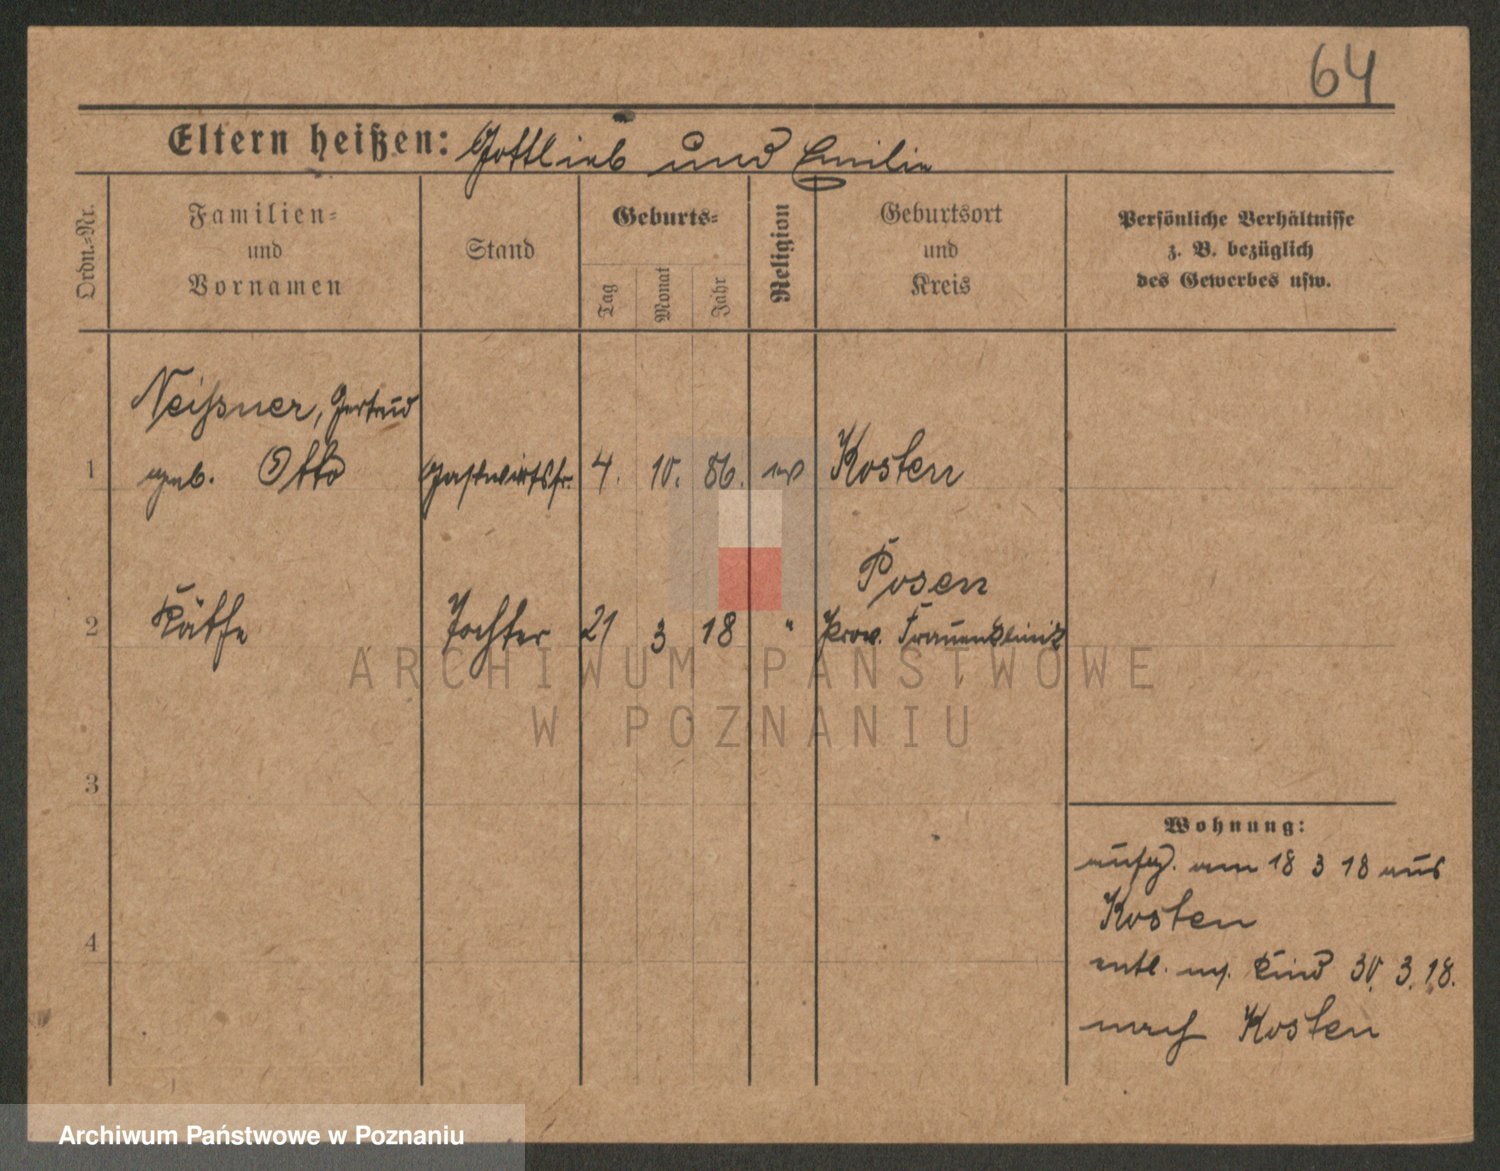 64
Eltern heißen: Gottlieb und Emilie
Ordn.=Nr.
Familien=
und
Vornamen
Stand
Geburts=
Tag
Monat
Jahr
Religion
Geburtsort
und
Kreis
Persönliche Verhältnisse
z. B. bezüglich
des Gewerbes usw.
Neißner, Gertrud
1 geb. Otto Gastwirtsfr. 4. 10. 86. ev Kosten
Posen
2 Käthe Tochter 21 3 18 " Prov. Frauenklinik
3
4
Wohnung:
aufg. am 18 3 18 aus
Kosten
entl. m. Kind 30. 3. 18.
nach Kosten
ARCHIWUM PAŃSTWOWE
W POZNANIU
Archiwum Państwowe w Poznaniu